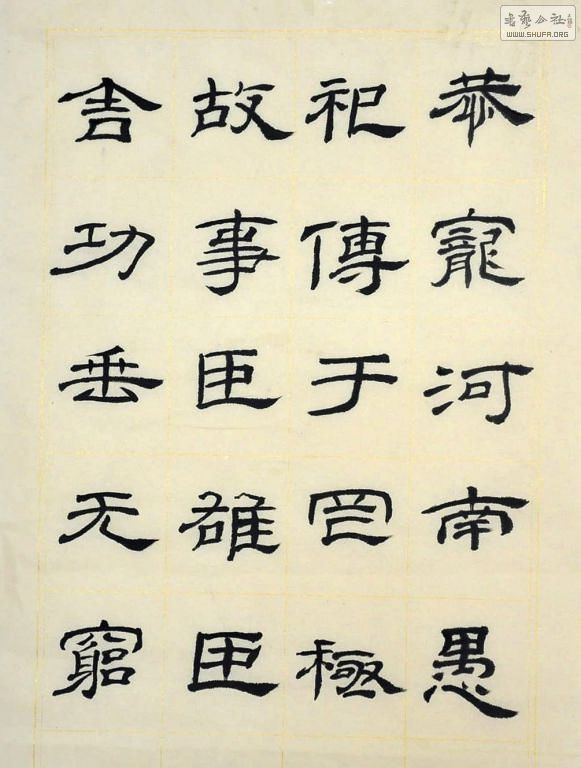 恭寵河南愚
祀傳于罔極
故事臣雄臣
舍功垂无窮
书艺公社
WWW.SHUFA.ORG